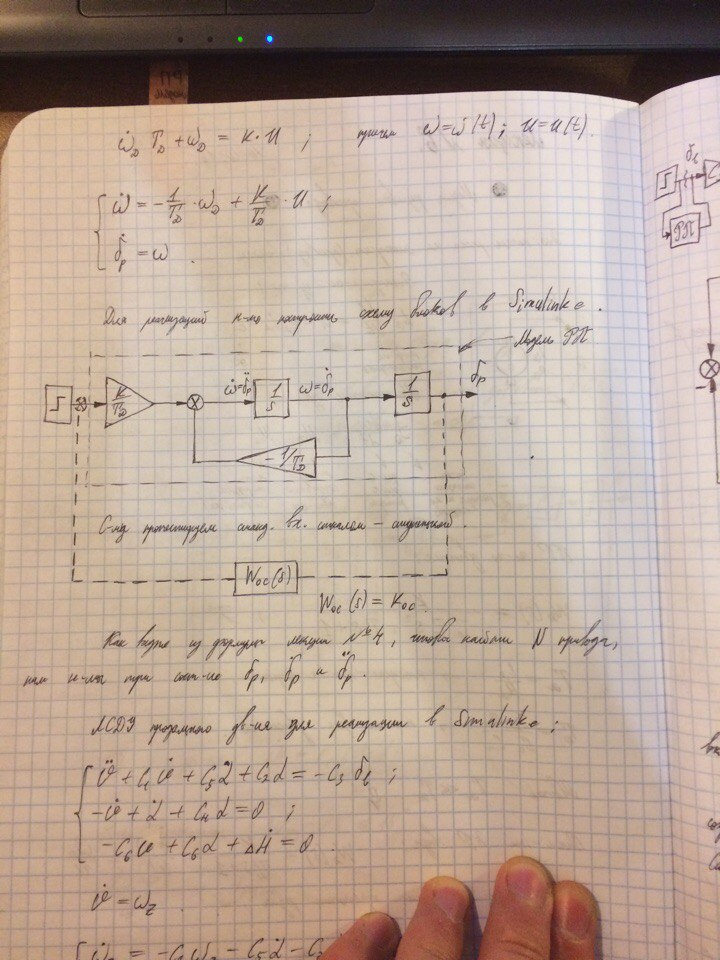 ω̇_D T_D + ω_D = K·U ; причем ω=ω(t); U=U(t).
ω̇ = -1/T_D · ω_D + K/T_D · U ;
δ̇_p = ω .
Для реализации н-мо построить схему блоков в Simulinke.
Модель РП
K/T_D ω̇=δ̈_p 1/s ω=δ̇_p 1/s δ_p
-1/T_D
С-му протестируем станд. вх. сигналом -
W_oc(s)
W_oc(s) = K_oc .
Как видно из формулы лекции №4, чтобы найти N привода,
нам н-мы три сост-ие δ_p, δ̇_p и δ̈_p.
ЛСДУ продольного дв-ия для реализации в Simulinke;
ϑ̈ + C₁ϑ̇ + C₅α̇ + C₂α = -C₃δ_в ;
-ϑ̇ + α̇ + C₄α = 0 ;
-C₆ϑ + C₆α + ΔḢ = 0 .
ϑ̇ = ω_z
= -C₁ω_z - C₅α̇ - C₂
δ_в
РП